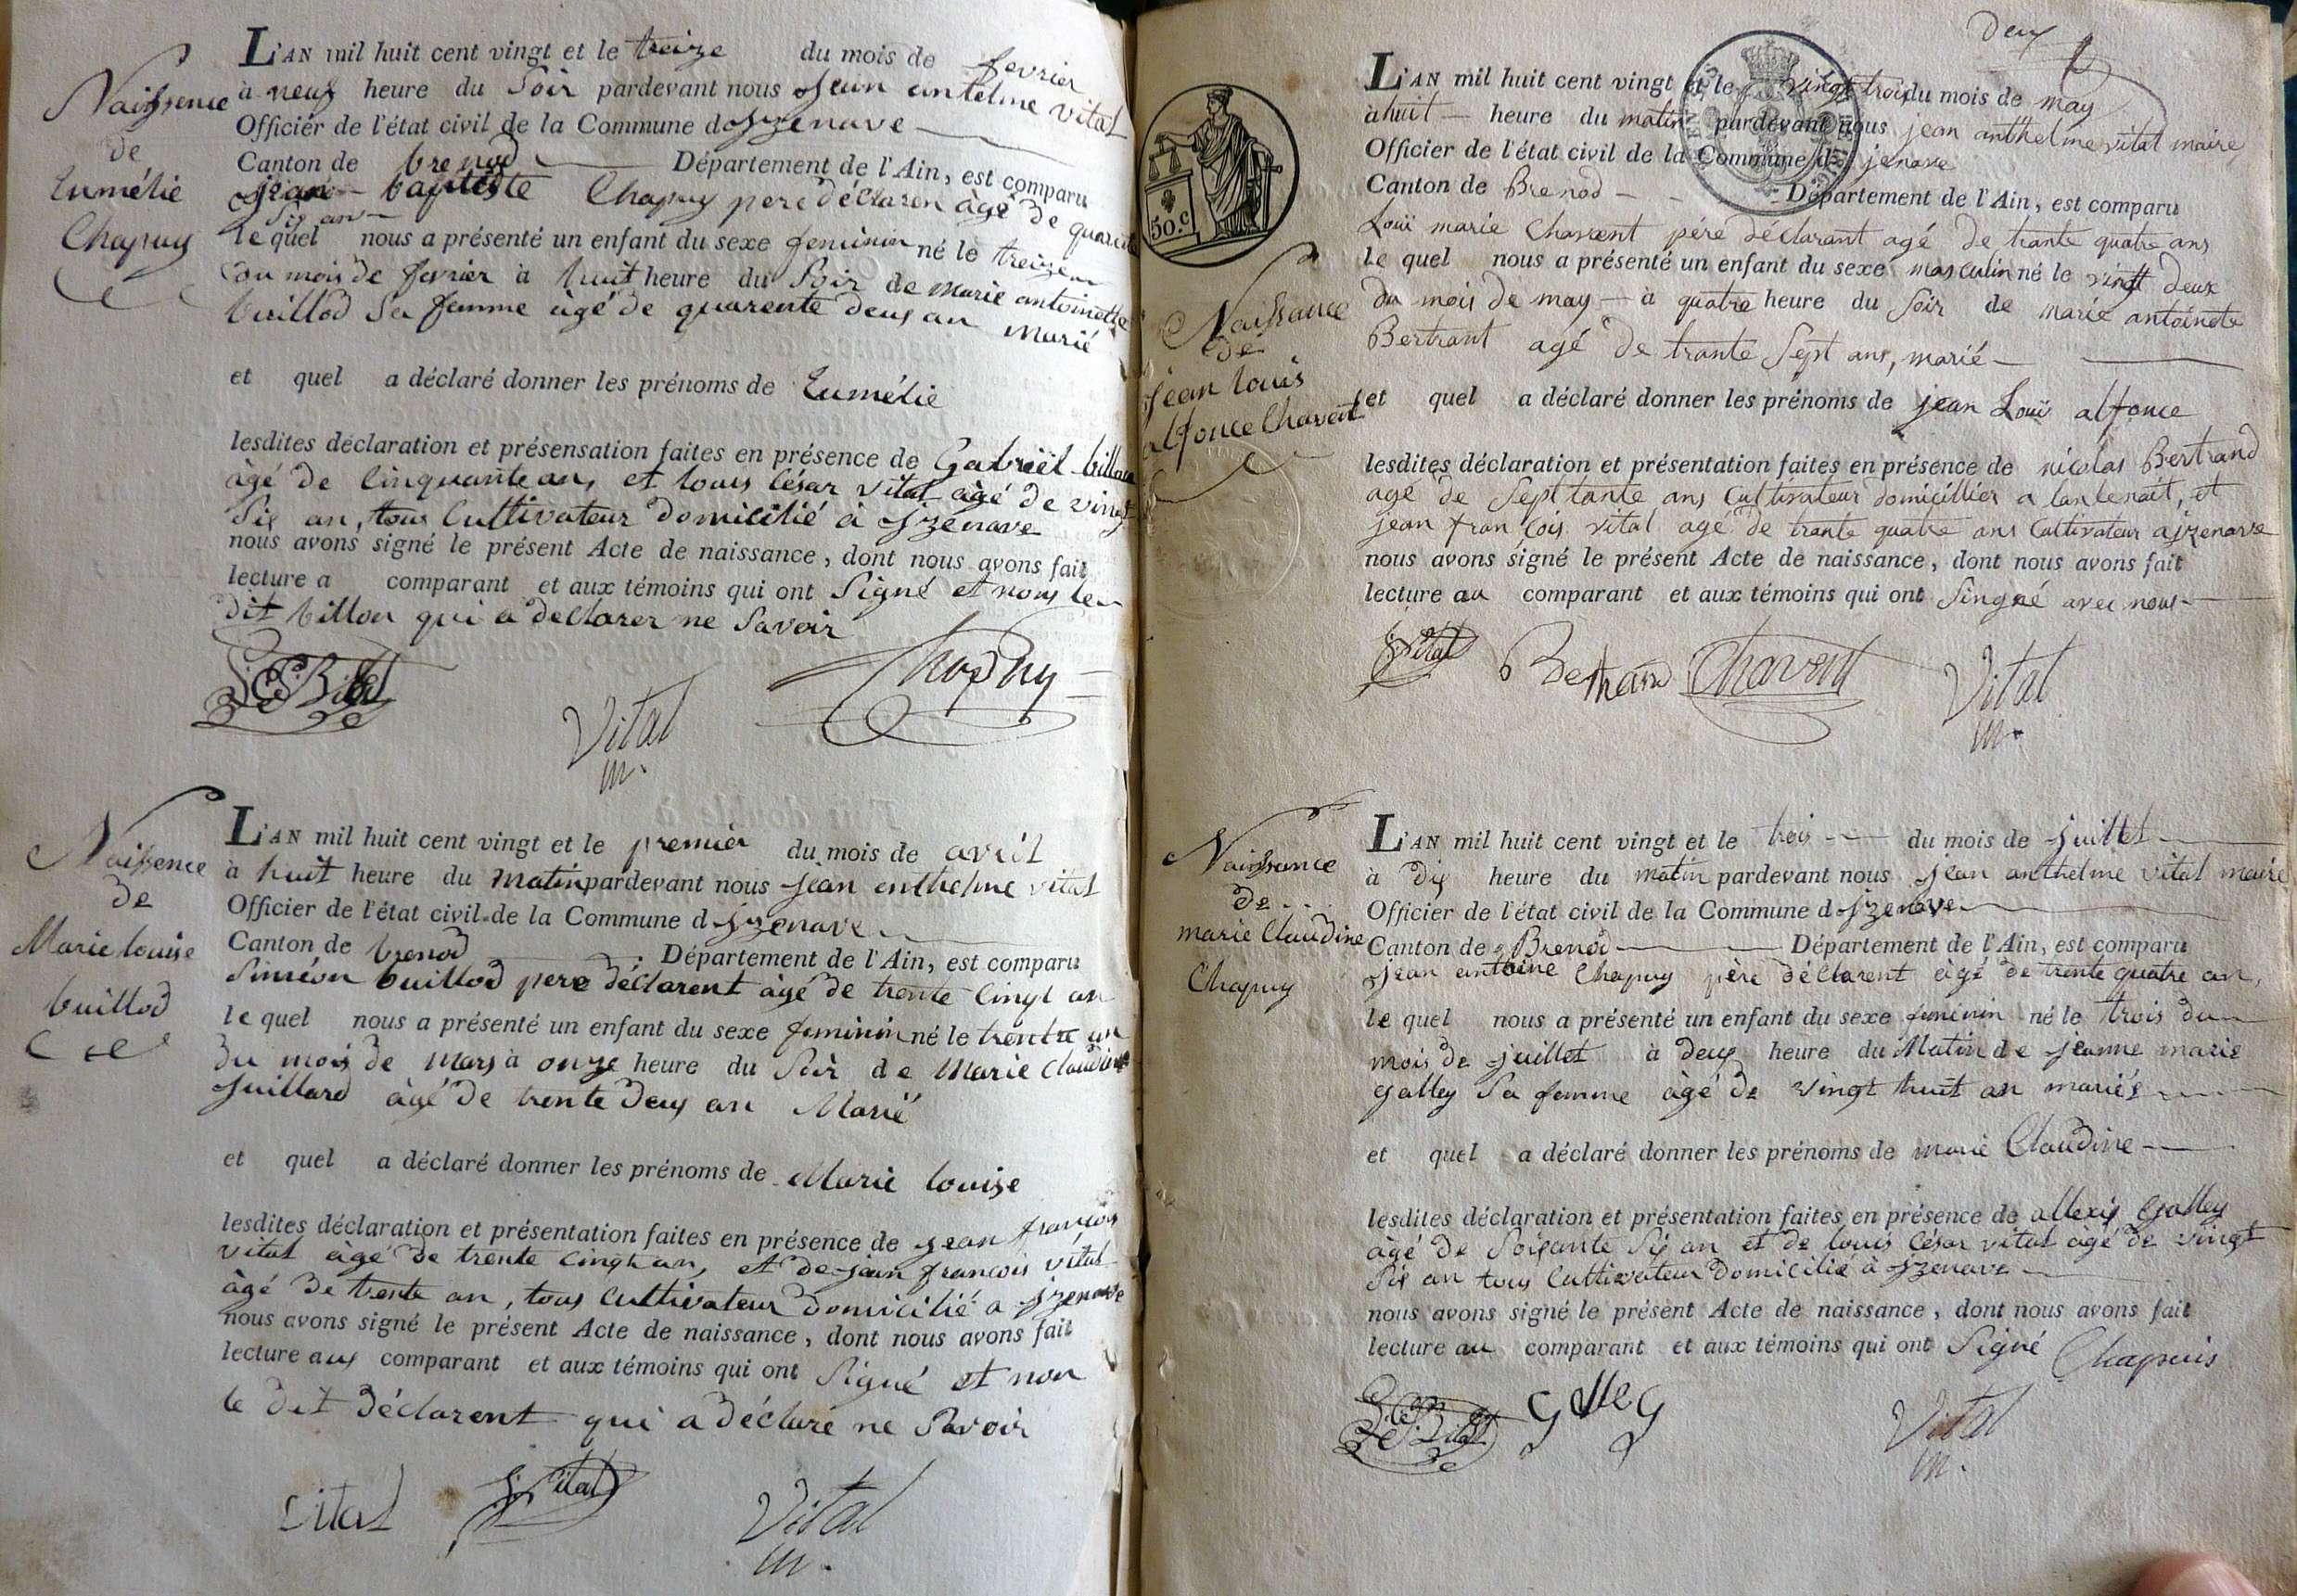 Naissence
de
Lumélie
Chapuy
L'AN mil huit cent vingt et le treize du mois de fevrier
à neuf heure du Soir pardevant nous Jean antelme vital
Officier de l'état civil de la Commune d Izenave
Canton de brenod Département de l'Ain, est comparu
jean baptiste Chapuy pere déclaren àgé de quarente
Six an
le quel nous a présenté un enfant du sexe feminin né le treizem
du mois de fevrier à huit heure du Soir de marie antoinette
buillod Sa femme àgé de quarente deux an marié
et quel a déclaré donner les prénoms de Lumélie
lesdites déclaration et présensation faites en présence de Gabriël billon
àgé de Cinquante an, et louis César vital àgé de vingt
Six an, tous Cultivateur domicilié à Izenave
nous avons signé le présent Acte de naissance, dont nous avons fait
lecture a comparant et aux témoins qui ont Signé et nom le
dit billon qui a declarer ne Savoir
Vital
m.
Chapuy
Naissence
de
Marie louise
buillod
L'AN mil huit cent vingt et le premier du mois de avril
à huit heure du matin pardevant nous jean enthelme vital
Officier de l'état civil de la Commune d Izenave
Canton de brenod Département de l'Ain, est comparu
Siméon buillod pere déclarent àgé de trente Cinq an
le quel nous a présenté un enfant du sexe feminin né le trentte un
du mois de mars à onze heure du Soir de Marie Claudine
Juillard àgé de trente deux an Marié
et quel a déclaré donner les prénoms de Marie louise
lesdites déclaration et présentation faites en présence de jean françois
vital àgé de trente Cinq an, et de jean francois vital
àgé de trente an, tous Cultivateur domicilié a Izenave
nous avons signé le présent Acte de naissance, dont nous avons fait
lecture aux comparant et aux témoins qui ont Signé et non
le dit déclarent qui a déclaré ne Savoir
vital
Vital
Vital
m.
deux
50.c
Naissance
de
jean louis
alfonce Chavent
L'AN mil huit cent vingt et le vingt trois du mois de may
à huit heure du matin pardevant nous jean anthelme vital maire
Officier de l'état civil de la Commune d jenave
Canton de Brenod Département de l'Ain, est comparu
Louï marie Chavent pére déclarant agé de trante quatre ans
le quel nous a présenté un enfant du sexe masculin né le vingt deux
du mois de may à quatre heure du Soir de marie antoinete
Bertrant agé de trante Sept ans, marié
et quel a déclaré donner les prénoms de jean Louï alfonce
lesdites déclaration et présentation faites en présence de nicolas Bertrand
agé de Septtante ans Cultivateur domicillier a lantenait, et
jean fran Cois vital agé de trante quatre ans Cultivateur a jzenave
nous avons signé le présent Acte de naissance, dont nous avons fait
lecture au comparant et aux témoins qui ont Singné avec nous
Vital
Bertrand
Chavent
Vital
m.
Naissance
de
marie Claudine
Chapuy
L'AN mil huit cent vingt et le trois du mois de juillet
à dix heure du matin pardevant nous jean anthelme vital maire
Officier de l'état civil de la Commune d Izenave
Canton de Brenod Département de l'Ain, est comparu
Jean antoine Chapuy père déclarent àgé de trente quatre an,
le quel nous a présenté un enfant du sexe feminin né le trois du
mois de juillet à deux heure du Matin de jeanne marie
galley Sa femme àgé de vingt huit an mariés
et quel a déclaré donner les prénoms de marie Claudine
lesdites déclaration et présentation faites en présence de allexis Galley
àgé de Soixante Six an et de louis César vital àgé de vingt
Six an tous Cultivateur domicilié à Izenave
nous avons signé le présent Acte de naissance, dont nous avons fait
lecture au comparant et aux témoins qui ont Signé Chapuis
Galley
Vital
m.